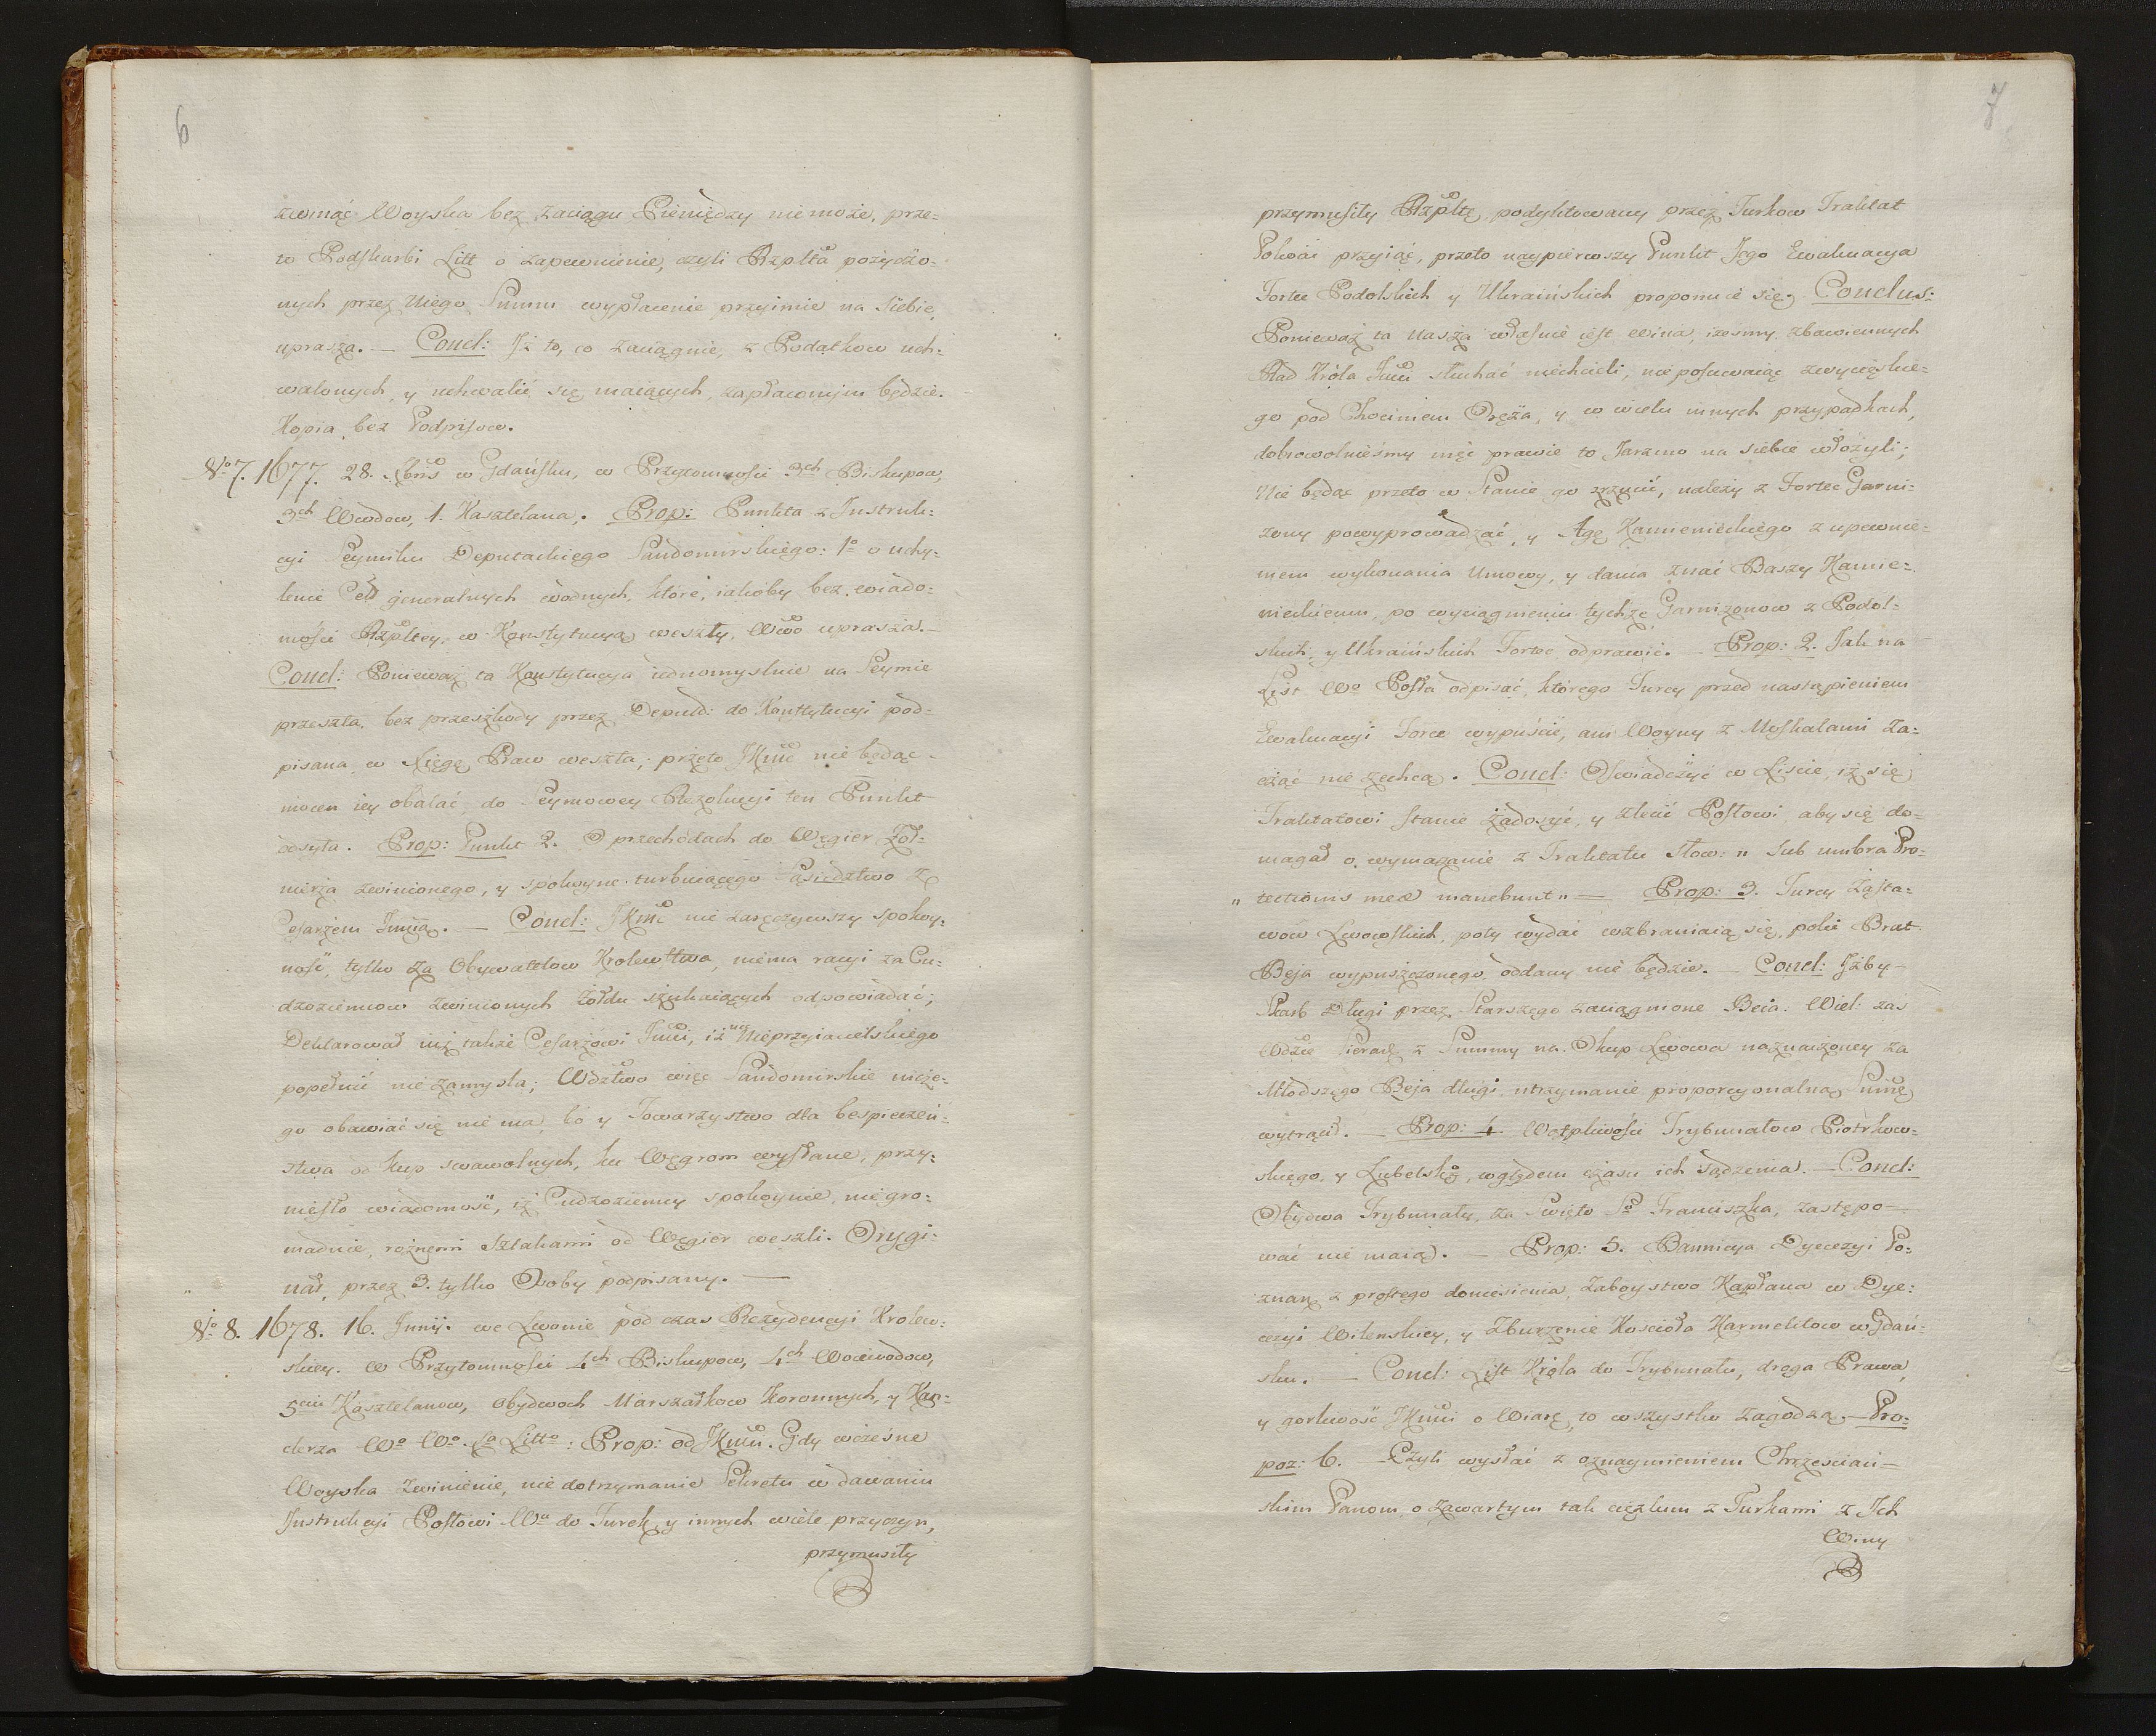 6
zwinąć Woyska bez zaciągu Pieniędzy niemoże, prze=
to Podskarbi Litt o zapewnienie, czyli Rzplta pożyczo=
nych przez Niego Summ wypłacenie przyimie na siebie,
uprasza. — Concl: Iż to, co zaciągnie, z Podatkow uch=
walonych, y uchwalić się maiących, zapłaconym będzie.
Kopia bez Podpisow.
No 7. 1677. 28. Xbris w Gdańsku, w Przytomności 3ch Biskupow,
3ch Wwdow, 1. Kasztelana. Prop: Punkta z Instruk=
cyi Seymiku Deputackiego Sandomirskiego: 1o o uchy=
lenie Ceł generalnych wodnych, które, iakoby bez wiado=
mości Rzpltey, w Konstytucyą weszły, Wwo uprasza. —
Concl: Ponieważ ta Konstytucya iednomyslnie na Seymie
przeszła, bez przeszkody przez Deputd: do Konstytucyi pod=
pisana w Xięgę Praw weszła; przeto JKmć nie będąc
mocen iey obalać, do Seymowey Rezolucyi ten Punkt
odsyła. Prop: Punkt 2. O przechodach do Węgier Żoł=
nierza zwinionego, y spokoyne turbuiącego Sąsiedztwo z
Cesarzem Jmcią. — Concl: JKmć nie zaręczywszy spokoy=
ność, tylko za Obywatelow Krolewstwa, niema racyi za Cu=
dzoziemcow zwinionych żołdu szukaiących odpowiadać;
Deklarował się także Cesarzowi Jmci, iż nic Nieprzyiacielskiego
popełnić nie zamysla; Wdztwo więc Sandomirskie nicze=
go obawiać się nie ma, bo y Towarzystwo dla bespieczeń=
stwa od kup swawolnych, ku Węgrom wysłane, przy=
niesło wiadomość, iż Cudzoziemcy spokoynie, niegro=
madnie, rożnemi Szlakami od Węgier weszli. Orygi=
nał, przez 3. tylko Osoby podpisany. —
No 8. 1678. 16. Junij. we Lwowie pod czas Rezydencyi Krolew=
skiey. W Przytomności 4ch Biskupow, 4ch Woiewodow,
5ciu Kasztelanow, Obydwoch Marszałkow Koronnych, y Kan=
clerza Wo Wo. Xa Litto: Prop: od JKmci. Gdy wczesne
Woyska zwinienie, nie dotrzymanie Sekretu w dawaniu
Instrukcyi Posłowi Wu do Turek, y innych wiele przyczyn,
przymusiły
7
przymusiły Rzpltę, podyktowany przez Turkow Traktat
Pokoiu przyiąć, przeto naypierwszy Punkt Jego Ewakuacya
Fortec Podolskich y Ukraińskich proponuie się. Conclus:
Ponieważ ta nasza własnie iest wina, iżesmy zbawiennych
Rad Króla Jmci słuchać niechcieli, nieposuwaiąc zwycięskie=
go pod Chocimem Oręża, y w wielu innych przypadkach,
dobrowolnieśmy więc prawie to Jarzmo na siebie włożyli;
Nie będąc przeto w Stanie go zrzucić, należy z Fortec Garni=
zony powyprowadzać, y Agę Kamienieckiego z upewnie=
niem wykonania Umowy, y dania znać Baszy Kamie=
nieckiemu, po wyciągnieniu tychże Garnizonow z Podol=
skich, y Ukraińskich Fortec odprawić. — Prop: 2. Jak na
List Wo Posła odpisać, którego Turcy przed nastąpieniem
Ewakuacyi Fortec wypuścić, ani Woyny z Moskalami za=
cząć nie zechcą. Concl: Oswiadczyć w Liscie, iż się
Traktatowi stanie zadosyć, y zlecić Posłowi, aby się do=
magał o wymazanie z Traktatu Słow: „ Sub umbra Pro=
„ tectionis meæ manebunt „ — Prop: 3. Turcy Zasta=
wow Lwowskich, poty wydać wzbraniaią się, poki Brat
Beja wypuszczonego, oddany nie będzie. — Concl: Iżby —
Skarb Długi przez Starszego zaciągnione Beia. Wiel: zaś
Wdzie Sieradz z Summy na Okup Lwowa naznaczoney za
Młodszego Beja długi, utrzymanie proporcyonalną Summę
wytrącił. — Prop: 4. Wątpliwości Trybunałow Piotrkow=
skiego, y Lubelskgo, względem czasu ich sądzenia. — Concl:
Obydwa Trybunały, za Swięto So Franciszka, zastępo=
wać nie maią. — Prop: 5. Bannicya Dyecezyi Po=
znan: z prostego doniesienia, Zaboystwo Kapłana w Dye=
cezyi Wilenskiey, y Zburzenie Koscioła Karmelitow w Gdań=
sku. — Concl: List Króla do Trybunału, droga Prawa,
y gorliwość JKmci o Wiarę, to wszystko zagodzą. — Pro=
poz: 6. — Czyli wysłać z oznaymieniem Chrzescian=
skim Panom, o zawartym tak ciężkim z Turkami z Ich
Winy